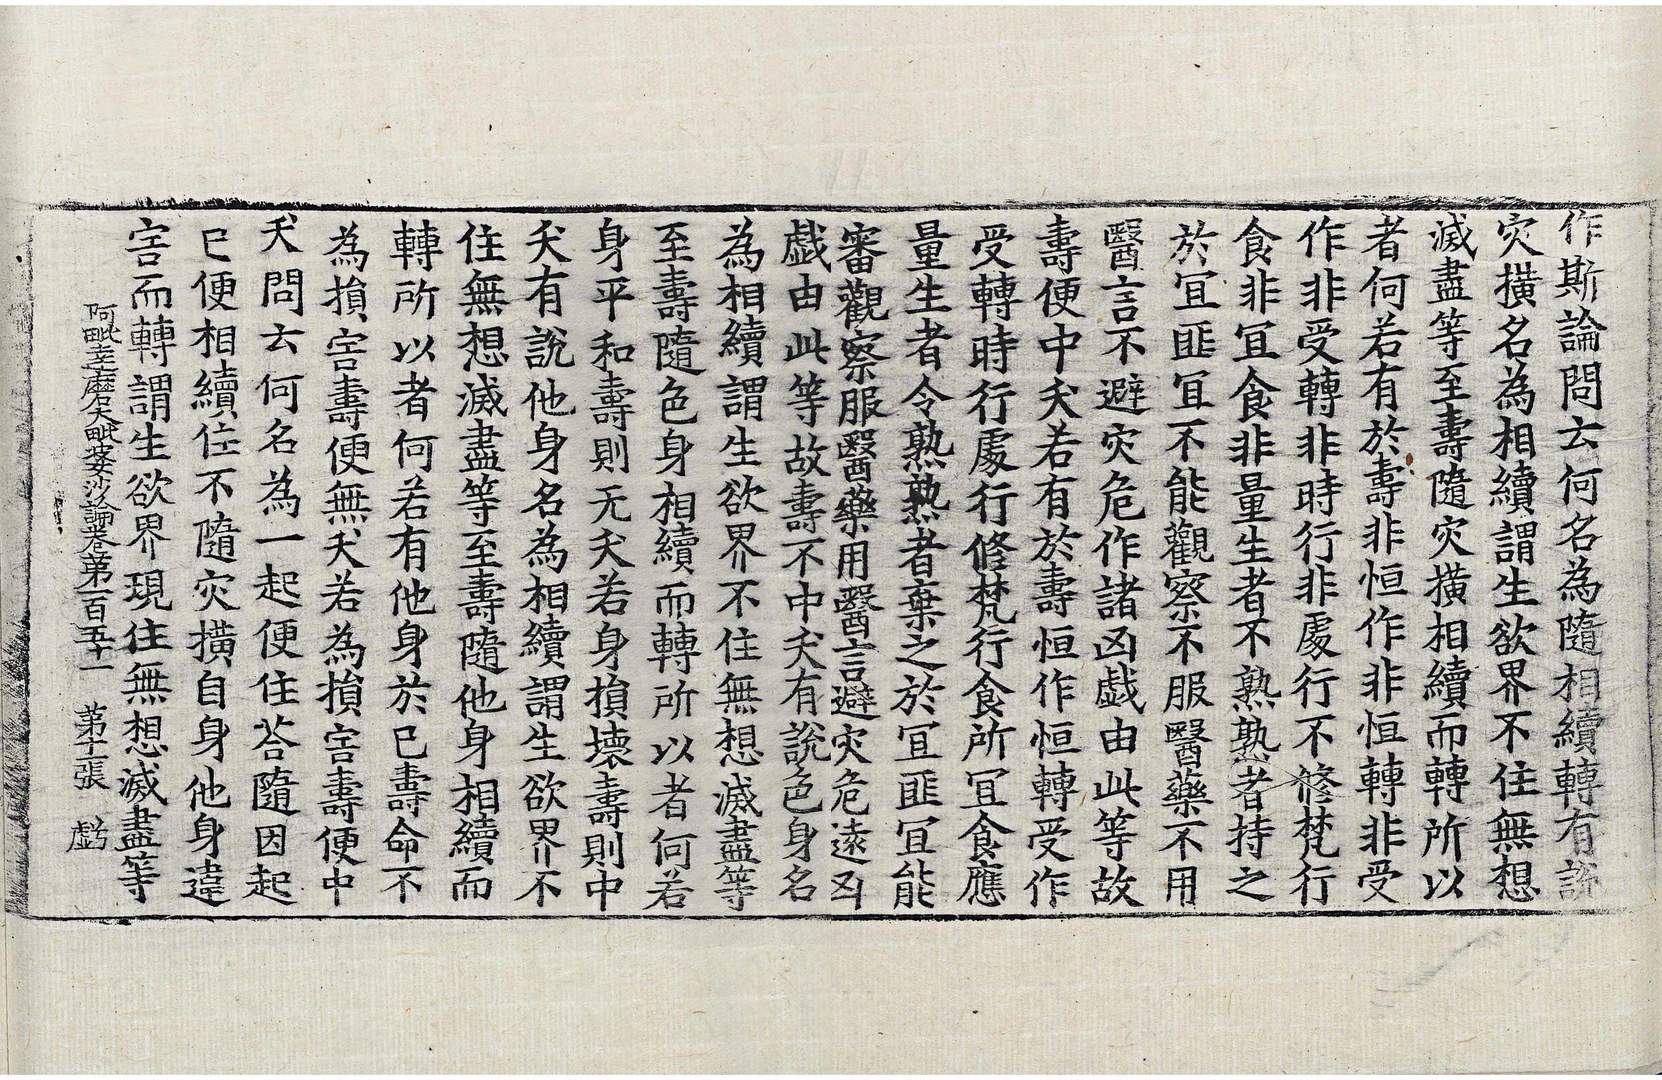 作斯論問云何名為隨相續轉有說
灾橫名為相續謂生欲界不住無想
滅盡等至壽隨灾橫相續而轉所以
者何若有於壽非恒作非恒轉非受
作非受轉非時行非處行不修梵行
食非冝食非量生者不熟熟者持之
於冝匪冝不能觀察不服醫藥不用
醫言不避灾危作諸凶戱由此等故
壽便中夭若有於壽恒作恒轉受作
受轉時行處行修梵行食所冝食應
量生者令熟熟者棄之於冝匪冝能
審觀察服醫藥用醫言避灾危遠凶
戱由此等故壽不中夭有說色身名
為相續謂生欲界不住無想滅盡等
至壽隨色身相續而轉所以者何若
身平和壽則无夭若身損壞壽則中
夭有說他身名為相續謂生欲界不
住無想滅盡等至壽隨他身相續而
轉所以者何若有他身於已壽命不
為損害壽便無夭若為損害壽便中
夭問云何名為一起便住荅隨因起
已便相續住不隨灾橫自身他身違
害而轉謂生欲界現住無想滅盡等
阿毗達磨大毗婆沙論卷第一百五十一 第十一張 虧